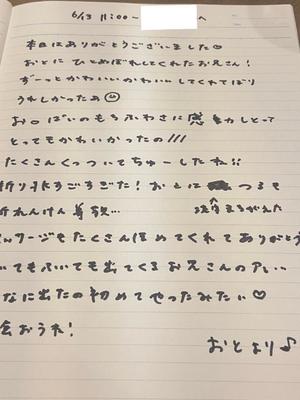 6/13 11:00- へ
本日はありがとうございました☺
おとに ひとめぼれしてくれたお兄さん!
ずーっとかわいいかわいいしてくれてばり
うれしかったぁ☺
お○ぱいのもちふわさに感しとって
とってもかわいかったの///
たくさんくっついてちゅーしたね!!
すごすごた! おとには つるも
折れんけん尊敬... まちがえた
ッサージもたくさんほめてくれてありがとう
いてもふいても出てくるお兄さんの
なに出たの初めてやったみたい♡
会おうね!
おとより♪